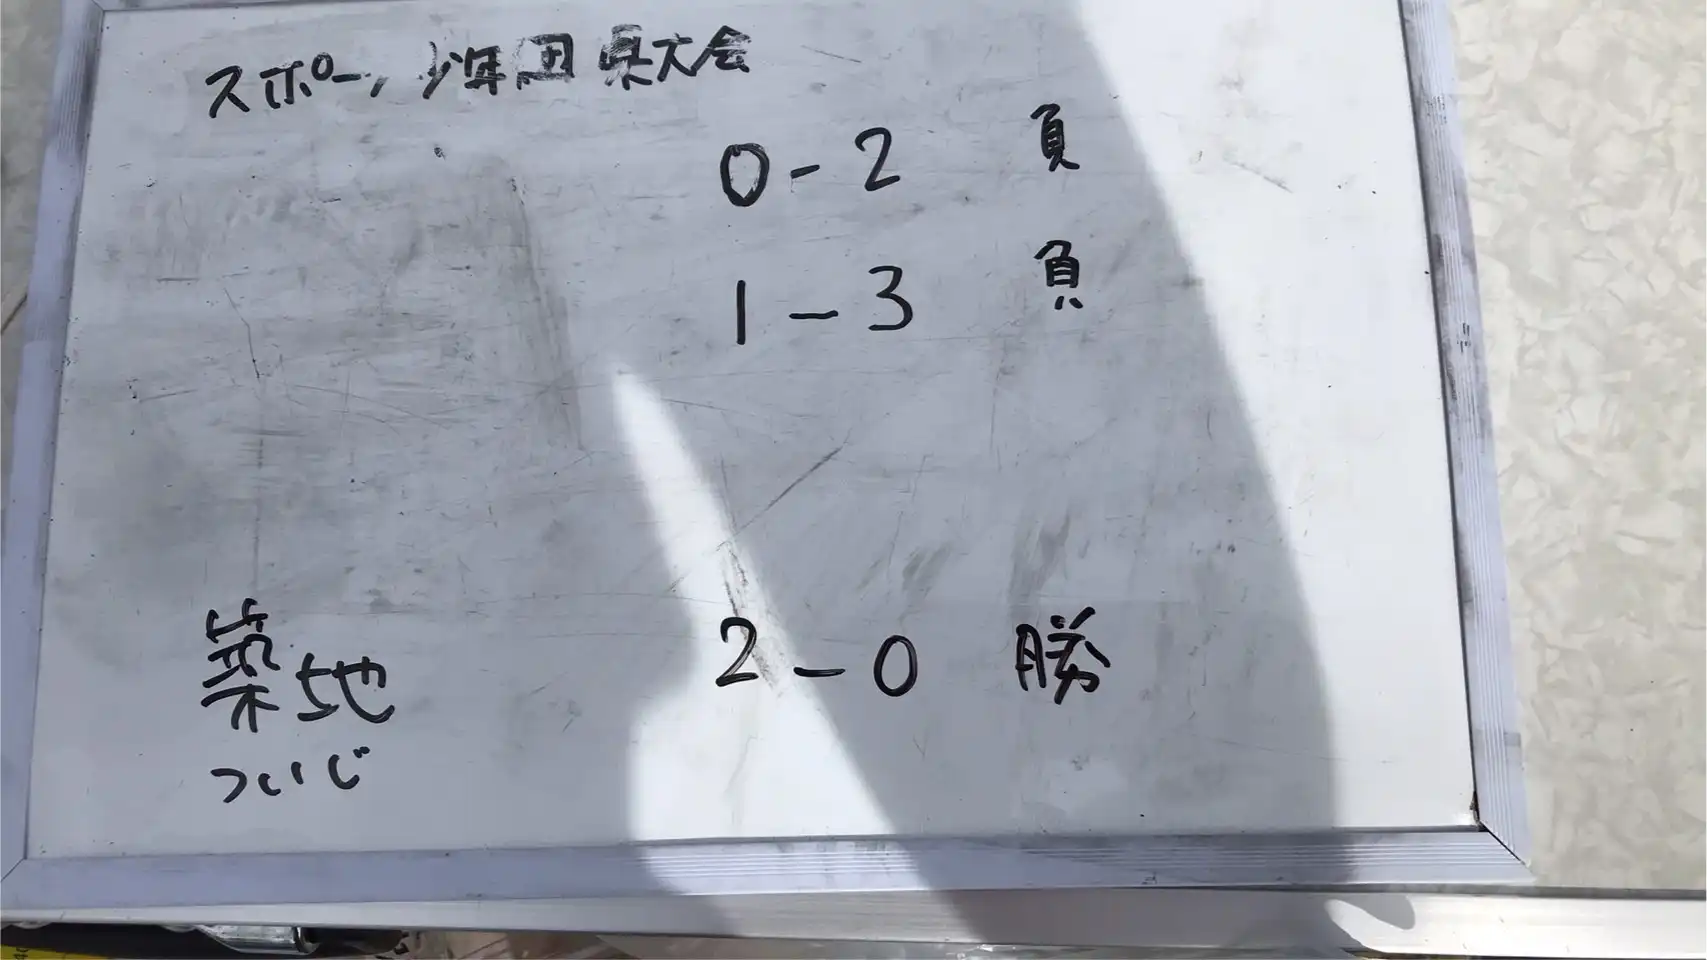 スポーツ少年団県大会
0-2 負
1-3 負
築地 2-0 勝
ついじ